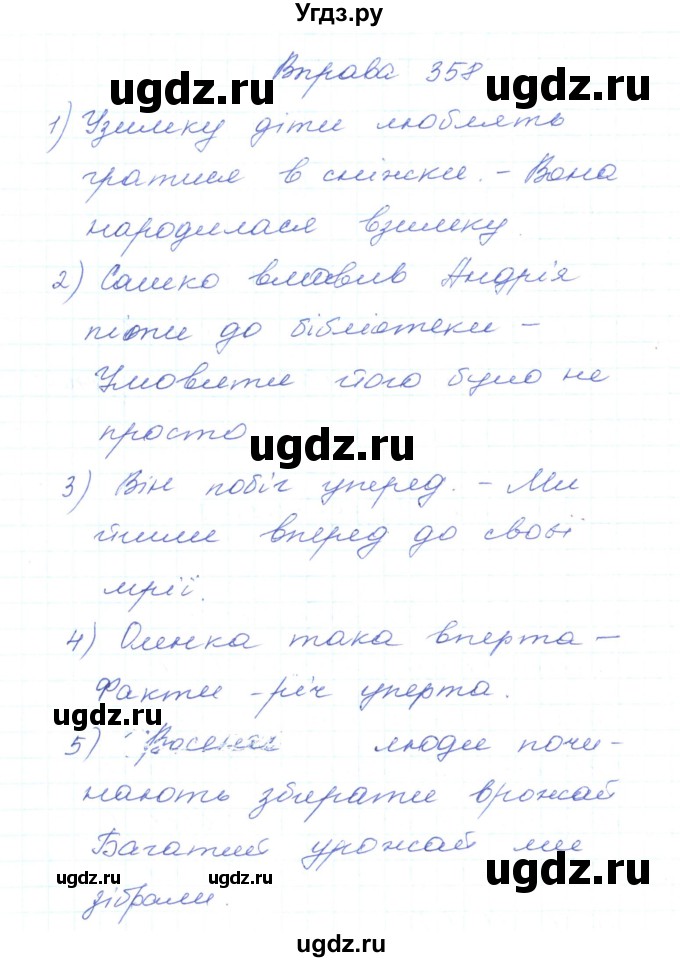 Угдз.ру
Вправа 358
ugdz.ru ugdz.ru
1) Узимку діти люблять
гратися в сніжки. - Вона
народилася взимку.
2) Сашко вмовив Андрія
піти до бібліотеки -
Умовляти його було не
просто
ugdz.ru
3) Він побіг уперед. - Ми
йшли вперед до своєї
мрії.
4) Оленка така вперта -
Факти - річ уперта.
ugdz.ru
5) Восени люди почи-
нають збирати врожай
Багатий урожай ми
ugdz.ru ugdz.ru ugdz.ru
зібрали.
ugdz.ru